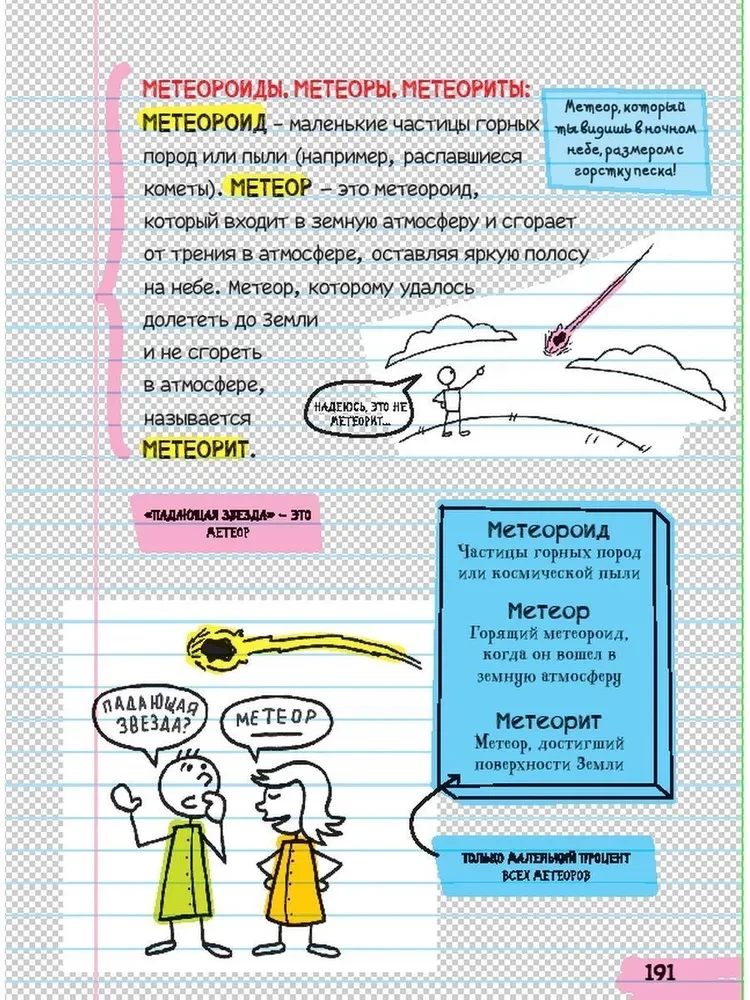 МЕТЕОРОИДЫ, МЕТЕОРЫ, МЕТЕОРИТЫ:
МЕТЕОРОИД – маленькие частицы горных
пород или пыли (например, распавшиеся
кометы). МЕТЕОР – это метеороид,
который входит в земную атмосферу и сгорает
от трения в атмосфере, оставляя яркую полосу
на небе. Метеор, которому удалось
долететь до Земли
и не сгореть
в атмосфере,
называется
МЕТЕОРИТ.
Метеор, который
ты видишь в ночном
небе, размером с
горстку песка!
НАДЕЮСЬ, ЭТО НЕ
МЕТЕОРИТ...
«ПАДАЮЩАЯ ЗВЕЗДА» – ЭТО
МЕТЕОР
Метеороид
Частицы горных пород
или космической пыли
Метеор
Горящий метеороид,
когда он вошел в
земную атмосферу
Метеорит
Метеор, достигший
поверхности Земли
ПАДАЮЩАЯ
ЗВЕЗДА?
МЕТЕОР
ТОЛЬКО МАЛЕНЬКИЙ ПРОЦЕНТ
ВСЕХ МЕТЕОРОВ
191